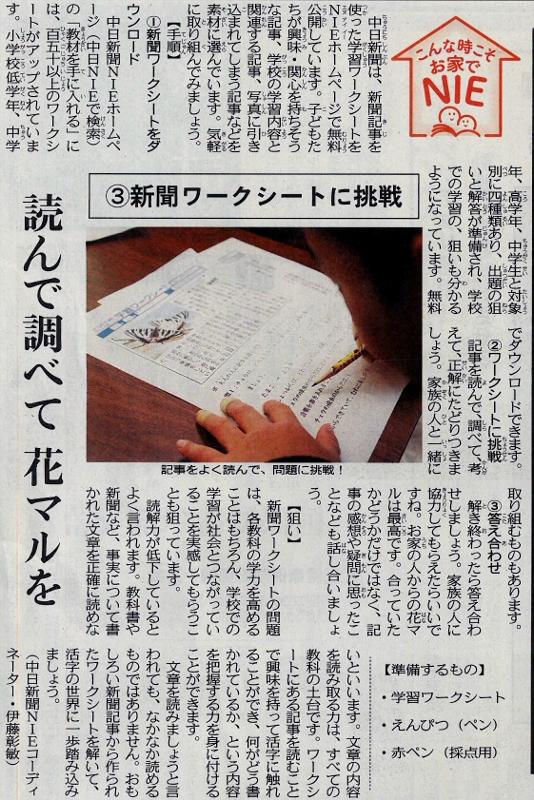 こんな時こそ
お家で
NIE
中日新聞は、新聞記事を
使った学習ワークシートを
NIEホームページで無料
公開しています。子どもた
ちが興味・関心を持ちそう
な記事、学校の学習内容と
関連する記事、写真に引き
込まれてしまう記事などを
素材に選んでいます。気軽
に取り組んでみましょう。
【手順】
①新聞ワークシートをダ
ウンロード
中日新聞NIEホームペ
ージ(中日NIEで検索)
の「教材を手に入れる」に
は、百五十以上のワークシ
ートがアップされていま
す。小学校低学年、中学
年、高学年、中学生と対象
別に四種類あり、出題の狙
いと解答が準備され、学校
での学習の、狙いも分かる
ようになっています。無料
でダウンロードできます。
②ワークシートに挑戦
記事を読んで、調べて、考
えて、正解にたどりつきま
しょう。家族の人と一緒に
取り組むものもあります。
③答え合わせ
解き終わったら答え合わ
せしましょう。家族の人に
協力してもらえたらいいで
すね。お家の人からの花マ
ルは最高です。合っていた
かどうかだけではなく、記
事の感想や疑問に思ったこ
となども話し合いましょ
う。
【狙い】
新聞ワークシートの問題
は、各教科の学力を高める
ことはもちろん、学校での
学習が社会とつながってい
ることを実感してもらうこ
とも狙っています。
読解力が低下していると
よく言われます。教科書や
新聞など、事実について書
かれた文章を正確に読めな
いといいます。文章の内容
を読み取る力は、すべての
教科の土台です。ワークシ
ートにある記事を読むこと
で興味を持って活字に触れ
ることができ、何がどう書
かれているか、という内容
を把握する力を身に付ける
ことができます。
文章を読みましょうと言
われても、なかなか読める
ものではありません。おも
しろい新聞記事から作られ
たワークシートを解いて、
活字の世界に一歩踏み込み
ましょう。
(中日新聞NIEコーディ
ネーター・伊藤彰敏)
③新聞ワークシートに挑戦
読んで調べて 花マルを
記事をよく読んで、問題に挑戦!
【準備するもの】
・学習ワークシート
・えんぴつ(ペン)
・赤ペン(採点用)